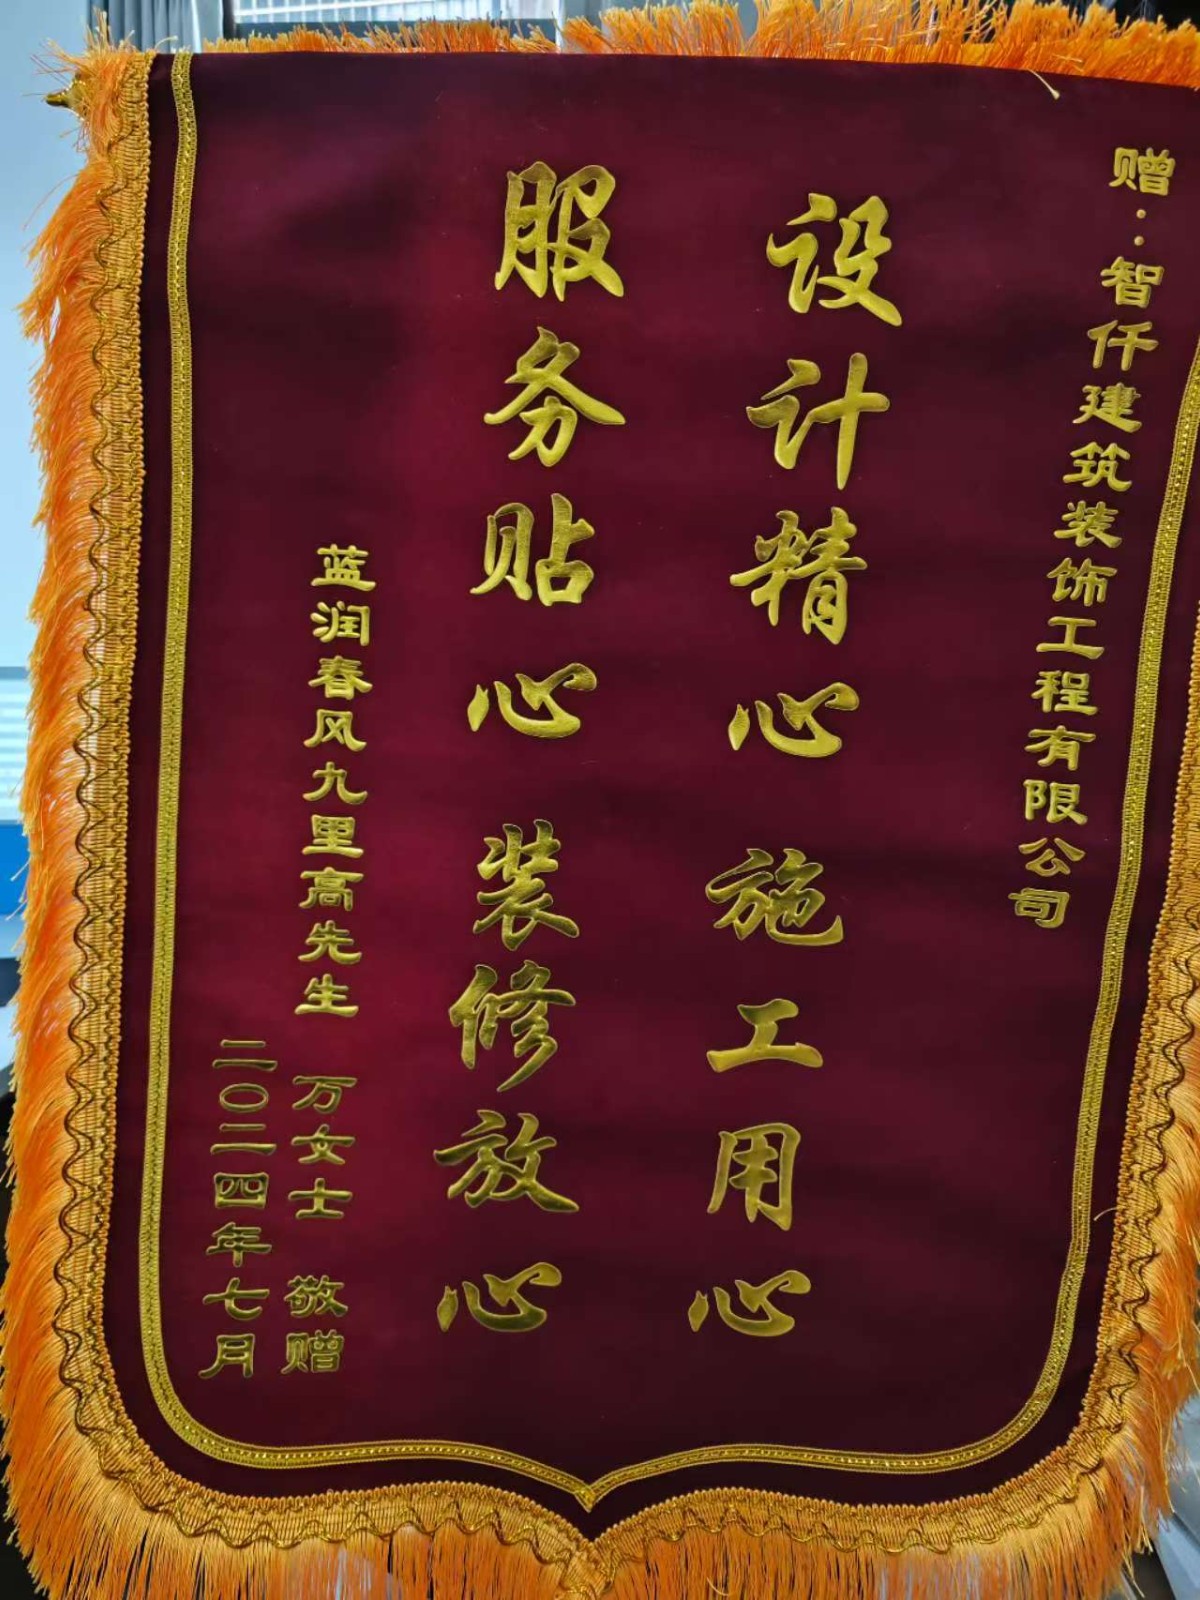 赠：智仟建筑装饰工程有限公司
设计精心 施工用心
服务贴心 装修放心
蓝润春风九里高先生 万女士 敬赠
二〇二四年七月